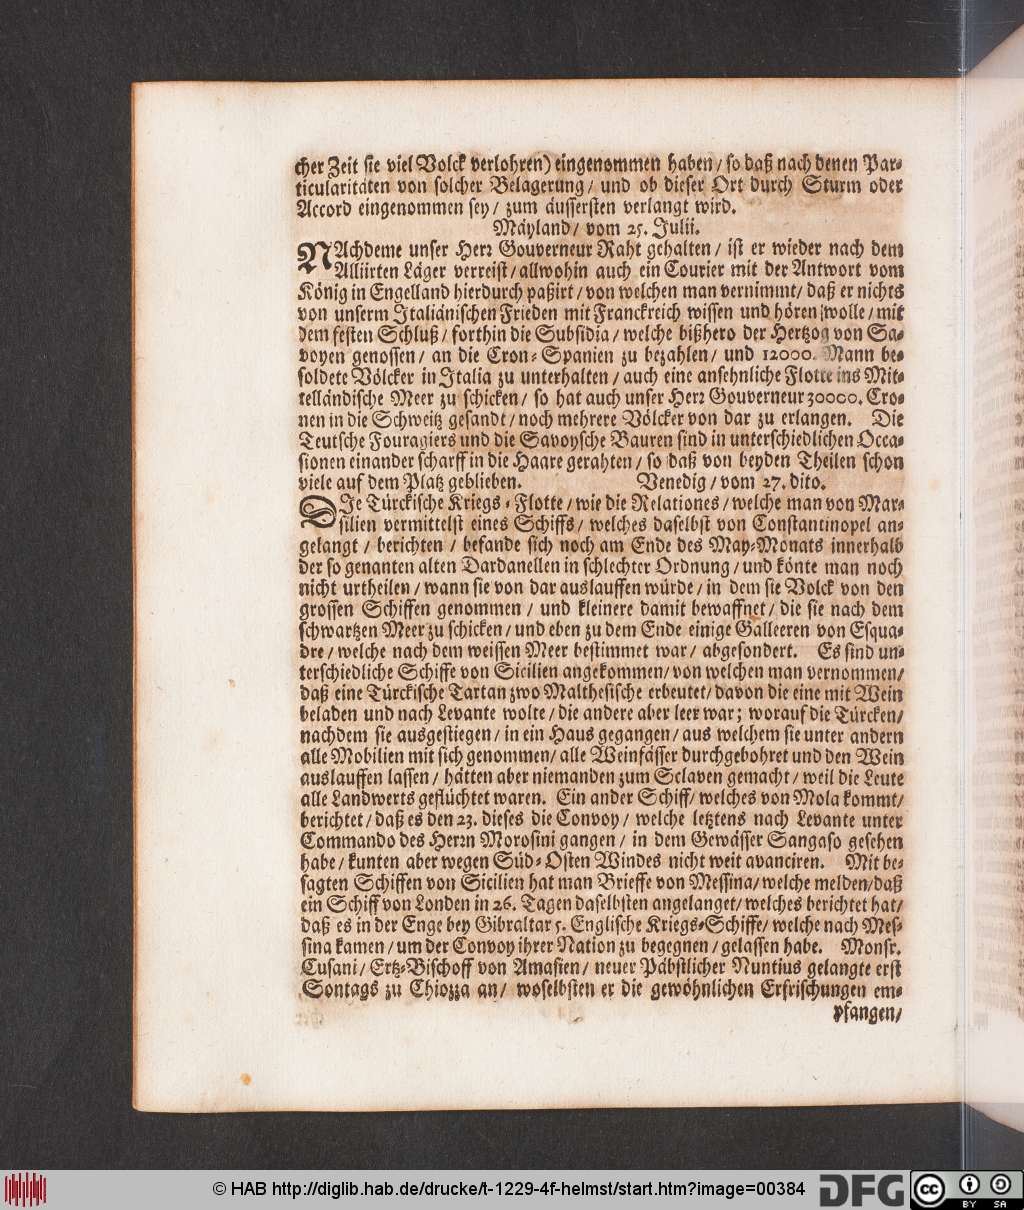 cher Zeit sie viel Volck verlohren) eingenommen haben / so daß nach denen Par-
ticularitäten von solcher Belagerung / und ob dieser Ort durch Sturm oder
Accord eingenommen sey / zum äussersten verlangt wird.
Mäyland / vom 25. Julii.
NAchdeme unser Herr Gouverneur Raht gehalten / ist er wieder nach dem
Alliirten Läger verreist / allwohin auch ein Courier mit der Antwort vom
König in Engelland hierdurch paßirt / von welchen man vernimmt / daß er nichts
von unserm Italiänischen Frieden mit Franckreich wissen und hören wolle / mit
dem festen Schluß / forthin die Subsidia / welche bißhero der Hertzog von Sa-
voyen genossen / an die Cron-Spanien zu bezahlen / und 12000. Mann be-
soldete Völcker in Italia zu unterhalten / auch eine ansehnliche Flotte ins Mit-
telländische Meer zu schicken / so hat auch unser Herr Gouverneur 30000. Cro-
nen in die Schweitz gesandt / noch mehrere Völcker von dar zu erlangen. Die
Teutsche Fouragiers und die Savoysche Bauren sind in unterschiedlichen Occa-
sionen einander scharff in die Haare gerahten / so daß von beyden Theilen schon
viele auf dem Platz geblieben. Venedig / vom 27. dito.
DIe Türckische Kriegs-Flotte / wie die Relationes / welche man von Mar-
silien vermittelst eines Schiffs / welches daselbst von Constantinopel an-
gelangt / berichten / befande sich noch am Ende des May-Monats innerhalb
der so genanten alten Dardanellen in schlechter Ordnung / und könte man noch
nicht urtheilen / wann sie von dar auslauffen würde / in dem sie Volck von den
grossen Schiffen genommen / und kleinere damit bewaffnet / die sie nach dem
schwartzen Meer zu schicken / und eben zu dem Ende einige Galleeren von Esqua-
dre / welche nach dem weissen Meer bestimmet war / abgesondert. Es sind un-
terschiedliche Schiffe von Sicilien angekommen / von welchen man vernommen /
daß eine Türckische Tartan zwo Malthesische erbeutet / davon die eine mit Wein
beladen und nach Levante wolte / die andere aber leer war; worauf die Türcken /
nachdem sie ausgestiegen / in ein Haus gegangen / aus welchem sie unter andern
alle Mobilien mit sich genommen / alle Weinfässer durchgebohret und den Wein
auslauffen lassen / hätten aber niemanden zum Sclaven gemacht / weil die Leute
alle Landwerts geflüchtet waren. Ein ander Schiff / welches von Mola kommt /
berichtet / daß es den 23. dieses die Convoy / welche letztens nach Levante unter
Commando des Herrn Morosini gangen / in dem Gewässer Sangaso gesehen
habe / kunten aber wegen Süd-Osten Windes nicht weit avanciren. Mit be-
sagten Schiffen von Sicilien hat man Brieffe von Messina / welche melden / daß
ein Schiff von Londen in 26. Tagen daselbsten angelanget / welches berichtet hat /
daß es in der Enge bey Gibraltar 5. Englische Kriegs-Schiffe / welche nach Mes-
sina kamen / um der Convoy ihrer Nation zu begegnen / gelassen habe. Monsr.
Cusani / Ertz-Bischoff von Amasien / neuer Päbstlicher Nuntius gelangte erst
Sontags zu Chiozza an / woselbsten er die gewöhnlichen Erfrischungen em-
pfangen /
© HAB http://diglib.hab.de/drucke/t-1229-4f-helmst/start.htm?image=00384
DFG
cc BY SA